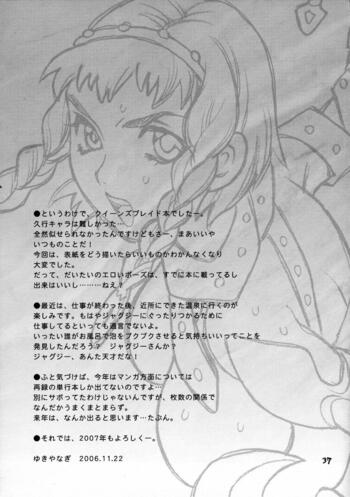 ●というわけで、クイーンズブレイド本でしたー。
久行キャラは難しかった…
全然似せられなかったんですけどもさー、まあいいや
いつものことだ!
今回は、表紙をどう描いたらいいものかわかんなくなり
大変でした。
だって、だいたいのエロいポーズは、すでに本に載ってるし
出来はいいし………ねえ?
●最近は、仕事が終わった後、近所にできた温泉に行くのが
楽しみです。もはやジャグジーにぐったりつかるために
仕事してるといっても過言でないよ。
いったい誰がお風呂で泡をブクブクさせると気持ちいいってことを
発見したんだろう? ジャグジーさんか?
ジャグジー、あんた天才だな!
●ふと気づけば、今年はマンガ方面については
再録の単行本しか出てないのですよ…
別にサボってたわけじゃないんですが、枚数の関係で
なんだかうまくまとまらず。
来年は、なんか出ると思うます…たぶん。
●それでは、2007年もよろしくー。
ゆきやなぎ 2006.11.22
37